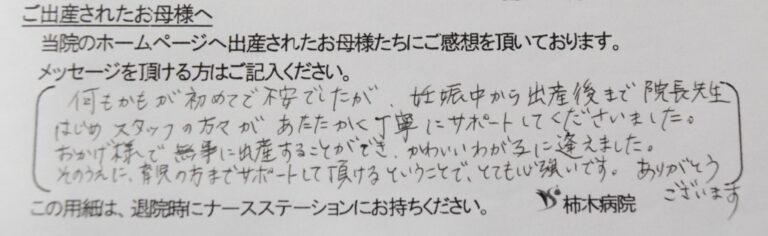 ご出産されたお母様へ
当院のホームページへ出産されたお母様たちにご感想を頂いております。
メッセージを頂ける方はご記入ください。
何もかもが初めてで不安でしたが、妊娠中から出産後まで院長先生
はじめスタッフの方々があたたかく丁寧にサポートしてくださいました。
おかげ様で無事に出産することができ、かわいいわが子に逢えました。
そのうえに、育児の方までサポートして頂けるということで、とても心強いです。ありがとう
ございます
この用紙は、退院時にナースステーションにお持ちください。 柿木病院